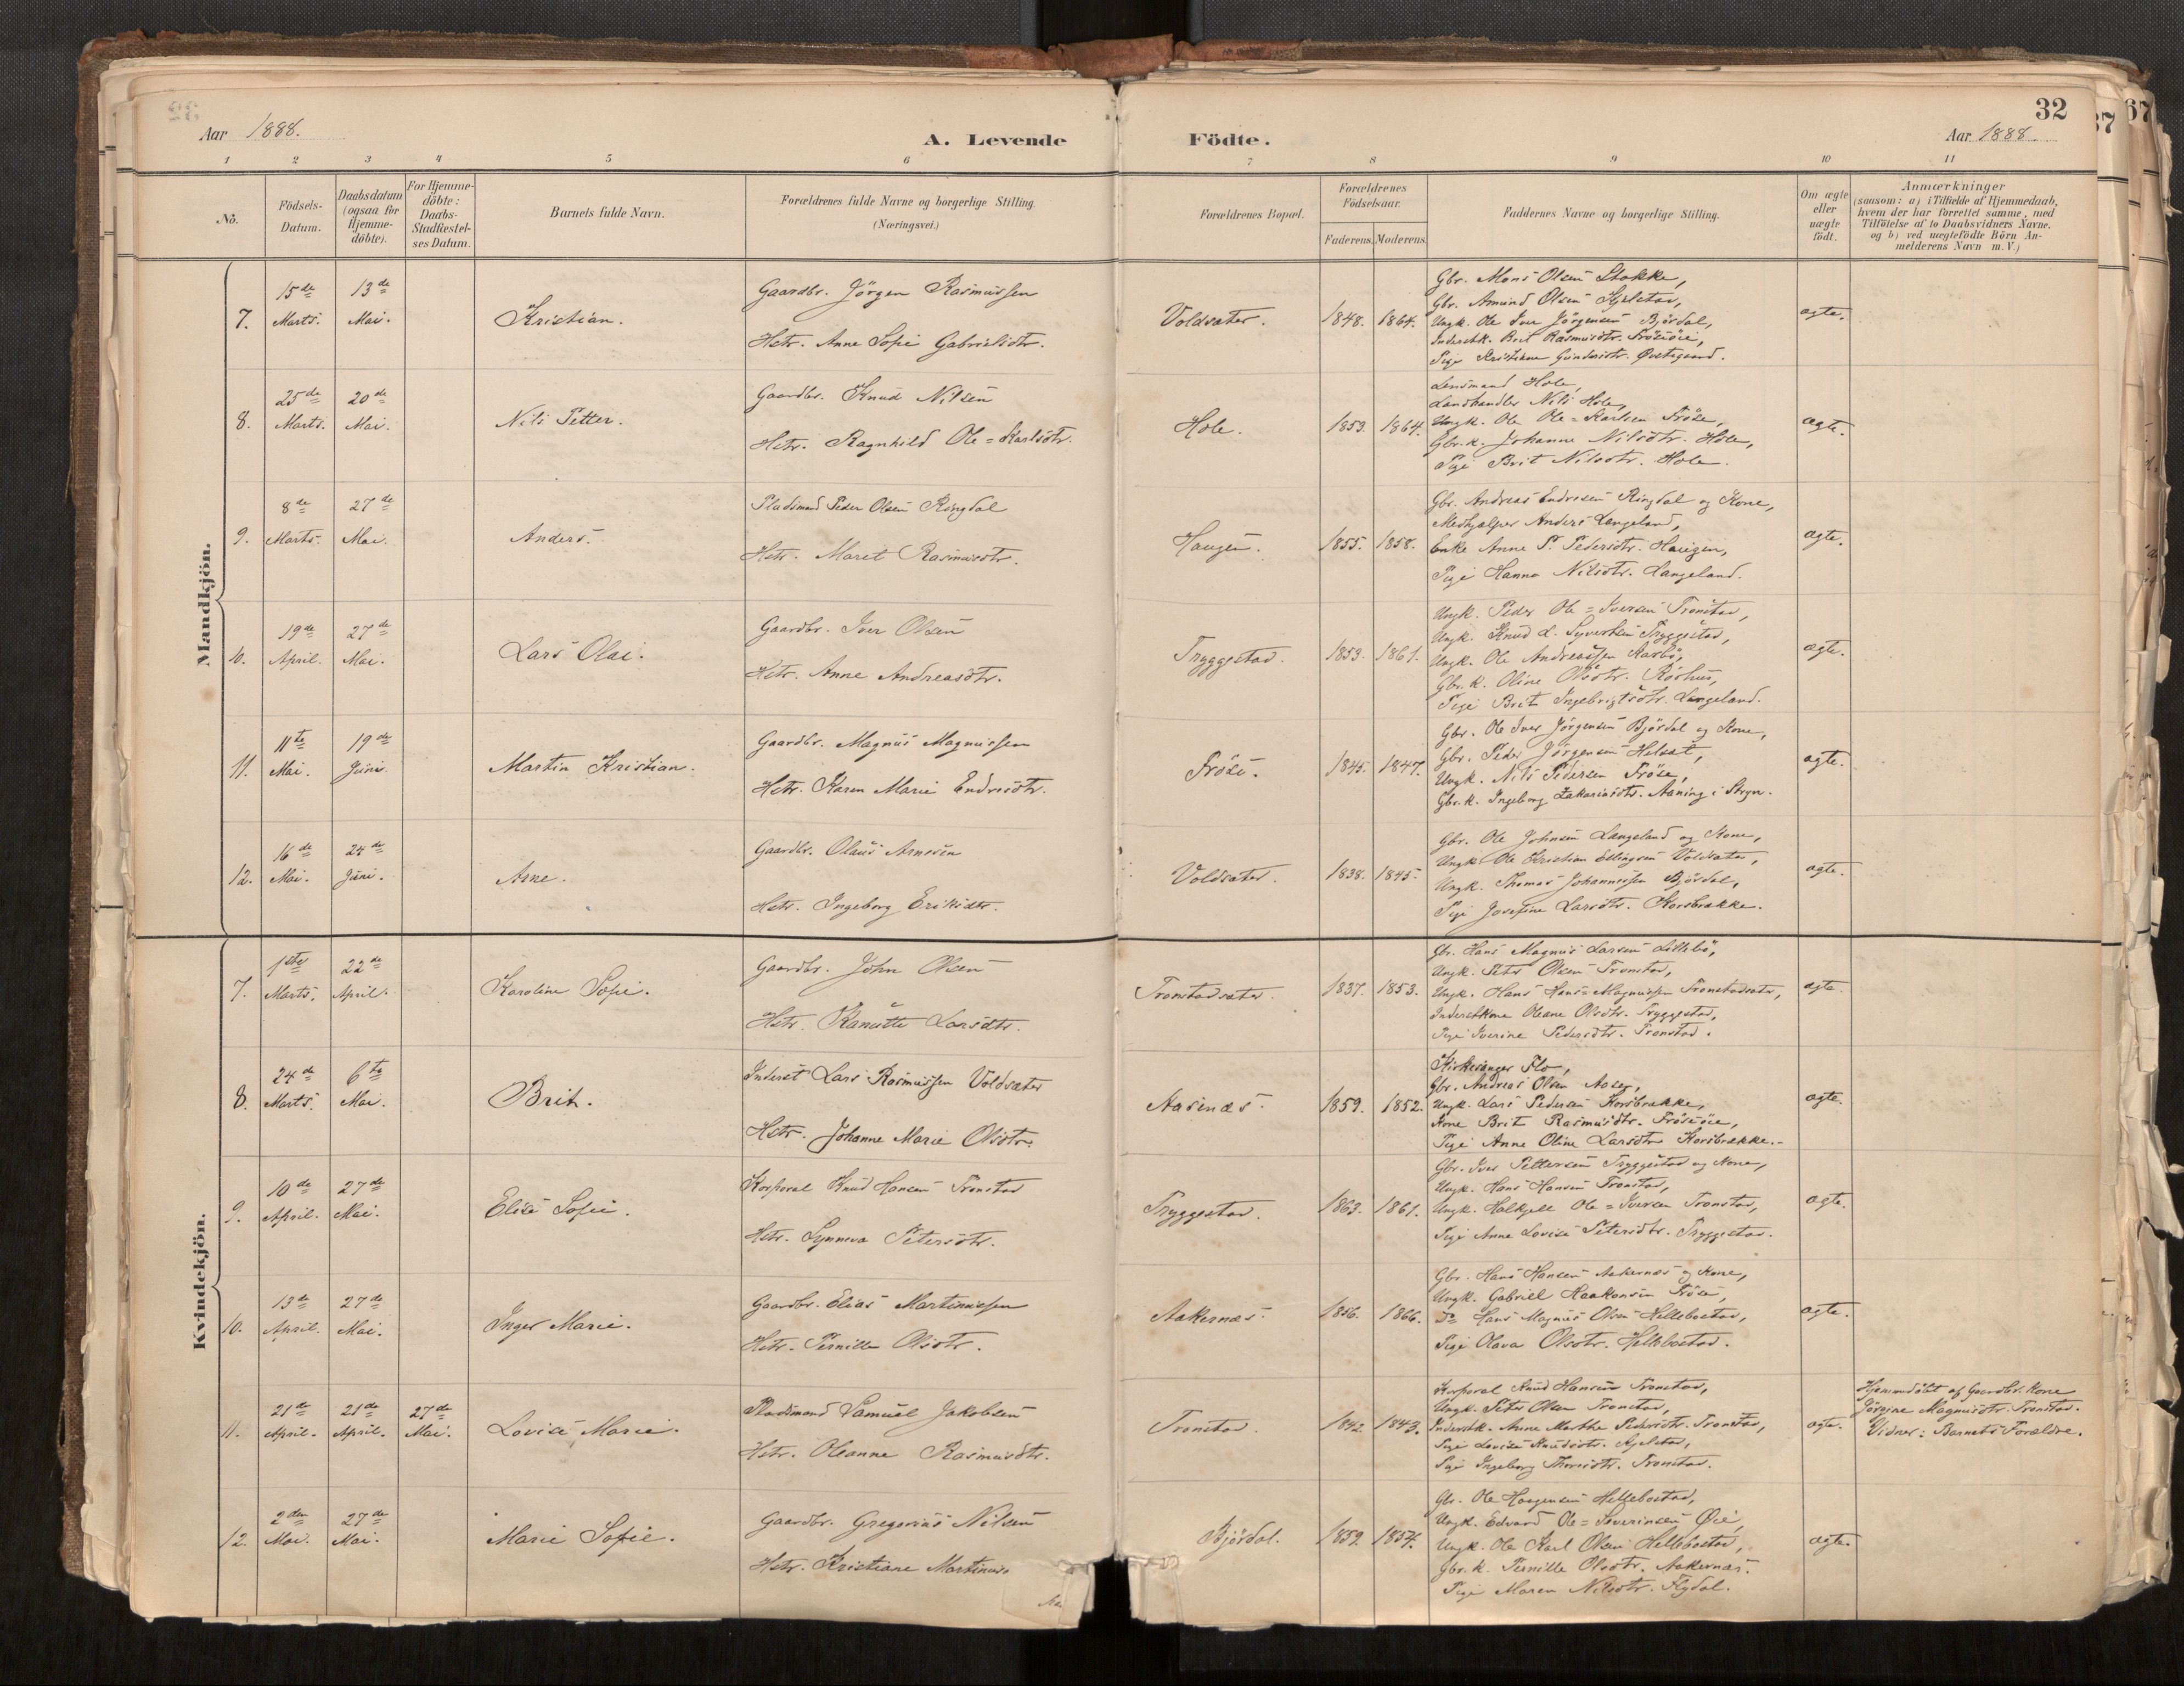 32
Aar 1888.
A. Levende Födte.
Aar 1888.
1 2 3 4 5 6 7 8 9 10 11
No.
Födsels-Datum.
Daabsdatum (ogsaa for Hjemme-döbte).
For Hjemme-döbte: Daabs-Stadfestel-ses Datum.
Barnets fulde Navn.
Forældrenes fulde Navne og borgerlige Stilling. (Næringsvei.)
Forældrenes Bopæl.
Forældrenes Födselsaar.
Faderens. Moderens.
Faddernes Navne og borgerlige Stilling.
Om ægte eller uægte födt.
Anmærkninger
(saasom: a) i Tilfælde af Hjemmedaab,
hvem der har forrettet samme, med
Tilföielse af to Daabsvidners Navne.
og b) ved uægtefödte Börn An-
melderens Navn m.V.)
Mandkjön.
7. 15de Marts. 13de Mai. Kristian.
Gaardbr. Jörgen Rasmussen
Hstr. Anne Sofie Gabrielsdtr.
Voldsæter. 1848. 1864.
Gbr. Mons Olsen Stokke,
Gbr. Amund Olsen Hjelstad,
Ungk. Ole Iver Jörgensen Björdal,
Inderstk. Brit Rasmusdtr. Frösöie,
Pige Kristiane Gundersdtr. Østegaard.
ægte.
8. 25de Marts. 20de Mai. Nils Petter.
Gaardbr. Knud Nilsen
Hstr. Ragnhild Ole=Karlsdtr.
Hole. 1853. 1864.
Lensmand Hole,
Landhandler Nils Hole,
Ungk. Ole Ole=Karlsen Fröse,
Gbr.k. Johanne Nilsdtr. Hole,
Pige Brit Nilsdtr. Hole.
ægte.
9. 8de Marts. 27de Mai. Anders.
Pladsmand Peder Olsen Ringdal
Hstr. Maret Rasmusdtr.
Haugen. 1855. 1858.
Gbr. Andreas Endresen Ringdal og Kone,
Medhjælper Anders Langeland,
Enke Anne P. Pedersdtr. Haugen,
Pige Hanna Nilsdtr. Langeland.
ægte.
10. 19de April. 27de Mai. Lars Olai.
Gaardbr. Iver Olsen
Hstr. Anne Andreasdtr.
Tryggestad. 1853. 1861.
Ungk. Peder Ole=Iversen Tronstad,
Ungk. Knud L. Syvertsen Tryggestad,
Ungk. Ole Andreassen
Gbr.k. Oline Olsdtr.
Pige Brit Ingebrigtsdtr. Langeland.
ægte.
11. 11te Mai. 19de Juni. Martin Kristian.
Gaardbr. Magnus Magnussen
Hstr. Karen Marie Endresdtr.
Fröse. 1845. 1847.
Gbr. Ole Iver Jörgensen Björdal og Kone,
Gbr. Peder Jörgensen Helset,
Ungk. Nils Pedersen Fröse,
Gbr.k. Ingeborg Zakariasdtr. Aaning i Stryn.
ægte.
12. 16de Mai. 24de Juni. Arne.
Gaardbr. Olaus Arnesen
Hstr. Ingeborg Eriksdtr.
Voldsæter. 1838. 1845.
Gbr. Ole Johnsen Langeland og Kone,
Ungk. Ole Kristian Ellingsen Voldsæter,
Ungk. Thomas Johannessen Björdal,
Pige Josefine Larsdtr. Korsbrække.
ægte.
Kvindekjön.
7. 1ste Marts. 22de April. Karoline Sofie.
Gaardbr. John Olsen
Hstr. Kanutte Larsdtr.
Tronstadsæter. 1837. 1853.
Gbr. Hans Magnus Larsen Lillebö,
Ungk. Peter Olsen Tronstad,
Ungk. Hans Hans=Magnussen Tronstadsæter,
Inderstkone Oleane Olsdtr. Tryggestad,
Pige Iverine Pedersdtr. Tronstad.
ægte.
8. 24de Marts. 6te Mai. Brit.
Inderst Lars Rasmussen Voldsæter
Hstr. Johanne Marie Olsdtr.
Aasnæs. 1859. 1852.
Kirkesanger Flo,
Gbr. Andreas Olsen Aasen,
Ungk. Lars Pedersen Korsbrække,
Kone Brit Rasmusdtr. Frösöie,
Pige Anne Oline Larsdtr. Korsbrække.
ægte.
9. 10de April. 27de Mai. Elise Sofie.
Korporal Knud Hansen Tronstad
Hstr. Synneva Petersdtr.
Tryggestad. 1863. 1861.
Gbr. Iver Pettersen Tryggestad og Kone,
Ungk. Hans Hansen Tronstad,
Ungk. Halkjell Ole=Iversen Tronstad,
Pige Anne Lovise Petersdtr. Tryggestad.
ægte.
10. 13de April. 27de Mai. Inger Marie.
Gaardbr. Elias Martinussen
Hstr. Pernille Olsdtr.
Aakernæs. 1856. 1866.
Gbr. Hans Hansen Aakernæs og Kone,
Ungk. Gabriel Haakonsen Fröse,
Do Hans Magnus Olsen Hellebostad,
Pige Olava Olsdtr. Hellebostad.
ægte.
11. 21de April. 21de April. 27de Mai. Lovise Marie.
Pladsmand Samuel Jakobsen
Hstr. Oleanne Rasmusdtr.
Tronstad. 1842. 1843.
Korporal Knud Hansen Tronstad,
Ungk. Peter Olsen Tronstad,
Inderstk. Anne Marthe Pedersdtr. Tronstad,
Pige Lovise Knudsdtr. Hjelstad,
Pige Ingeborg Thoresdtr. Tronstad.
ægte.
Hjemmedöbt af Gaardbr. Kone
Jörgine Magnusdtr. Tronstad.
Vidner: Barnets Forældre.
12. 2den Mai. 27de Mai. Marie Sofie.
Gaardbr. Gregorius Nilsen
Hstr. Kristiane Martinus
Björdal. 1859. 1857.
Gbr. Ole Haagensen Hellebostad,
Ungk. Edvard Ole=Severinsen Øie,
Ungk. Ole Karl Olsen Hellebostad,
Gbr.k. Pernille Olsdtr. Aakernæs.
Pige Maren Nilsdtr. Flydal.
ægte.